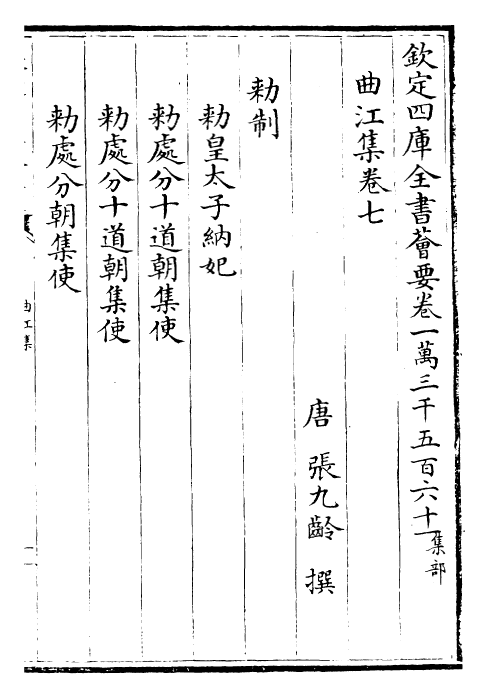 欽定四庫全書薈要卷一萬三千五百六十一集部
曲江集卷七
唐 張九齡 撰
勅制
勅皇太子納妃
勅處分十道朝集使
勅處分十道朝集使
勅處分朝集使
曲江集